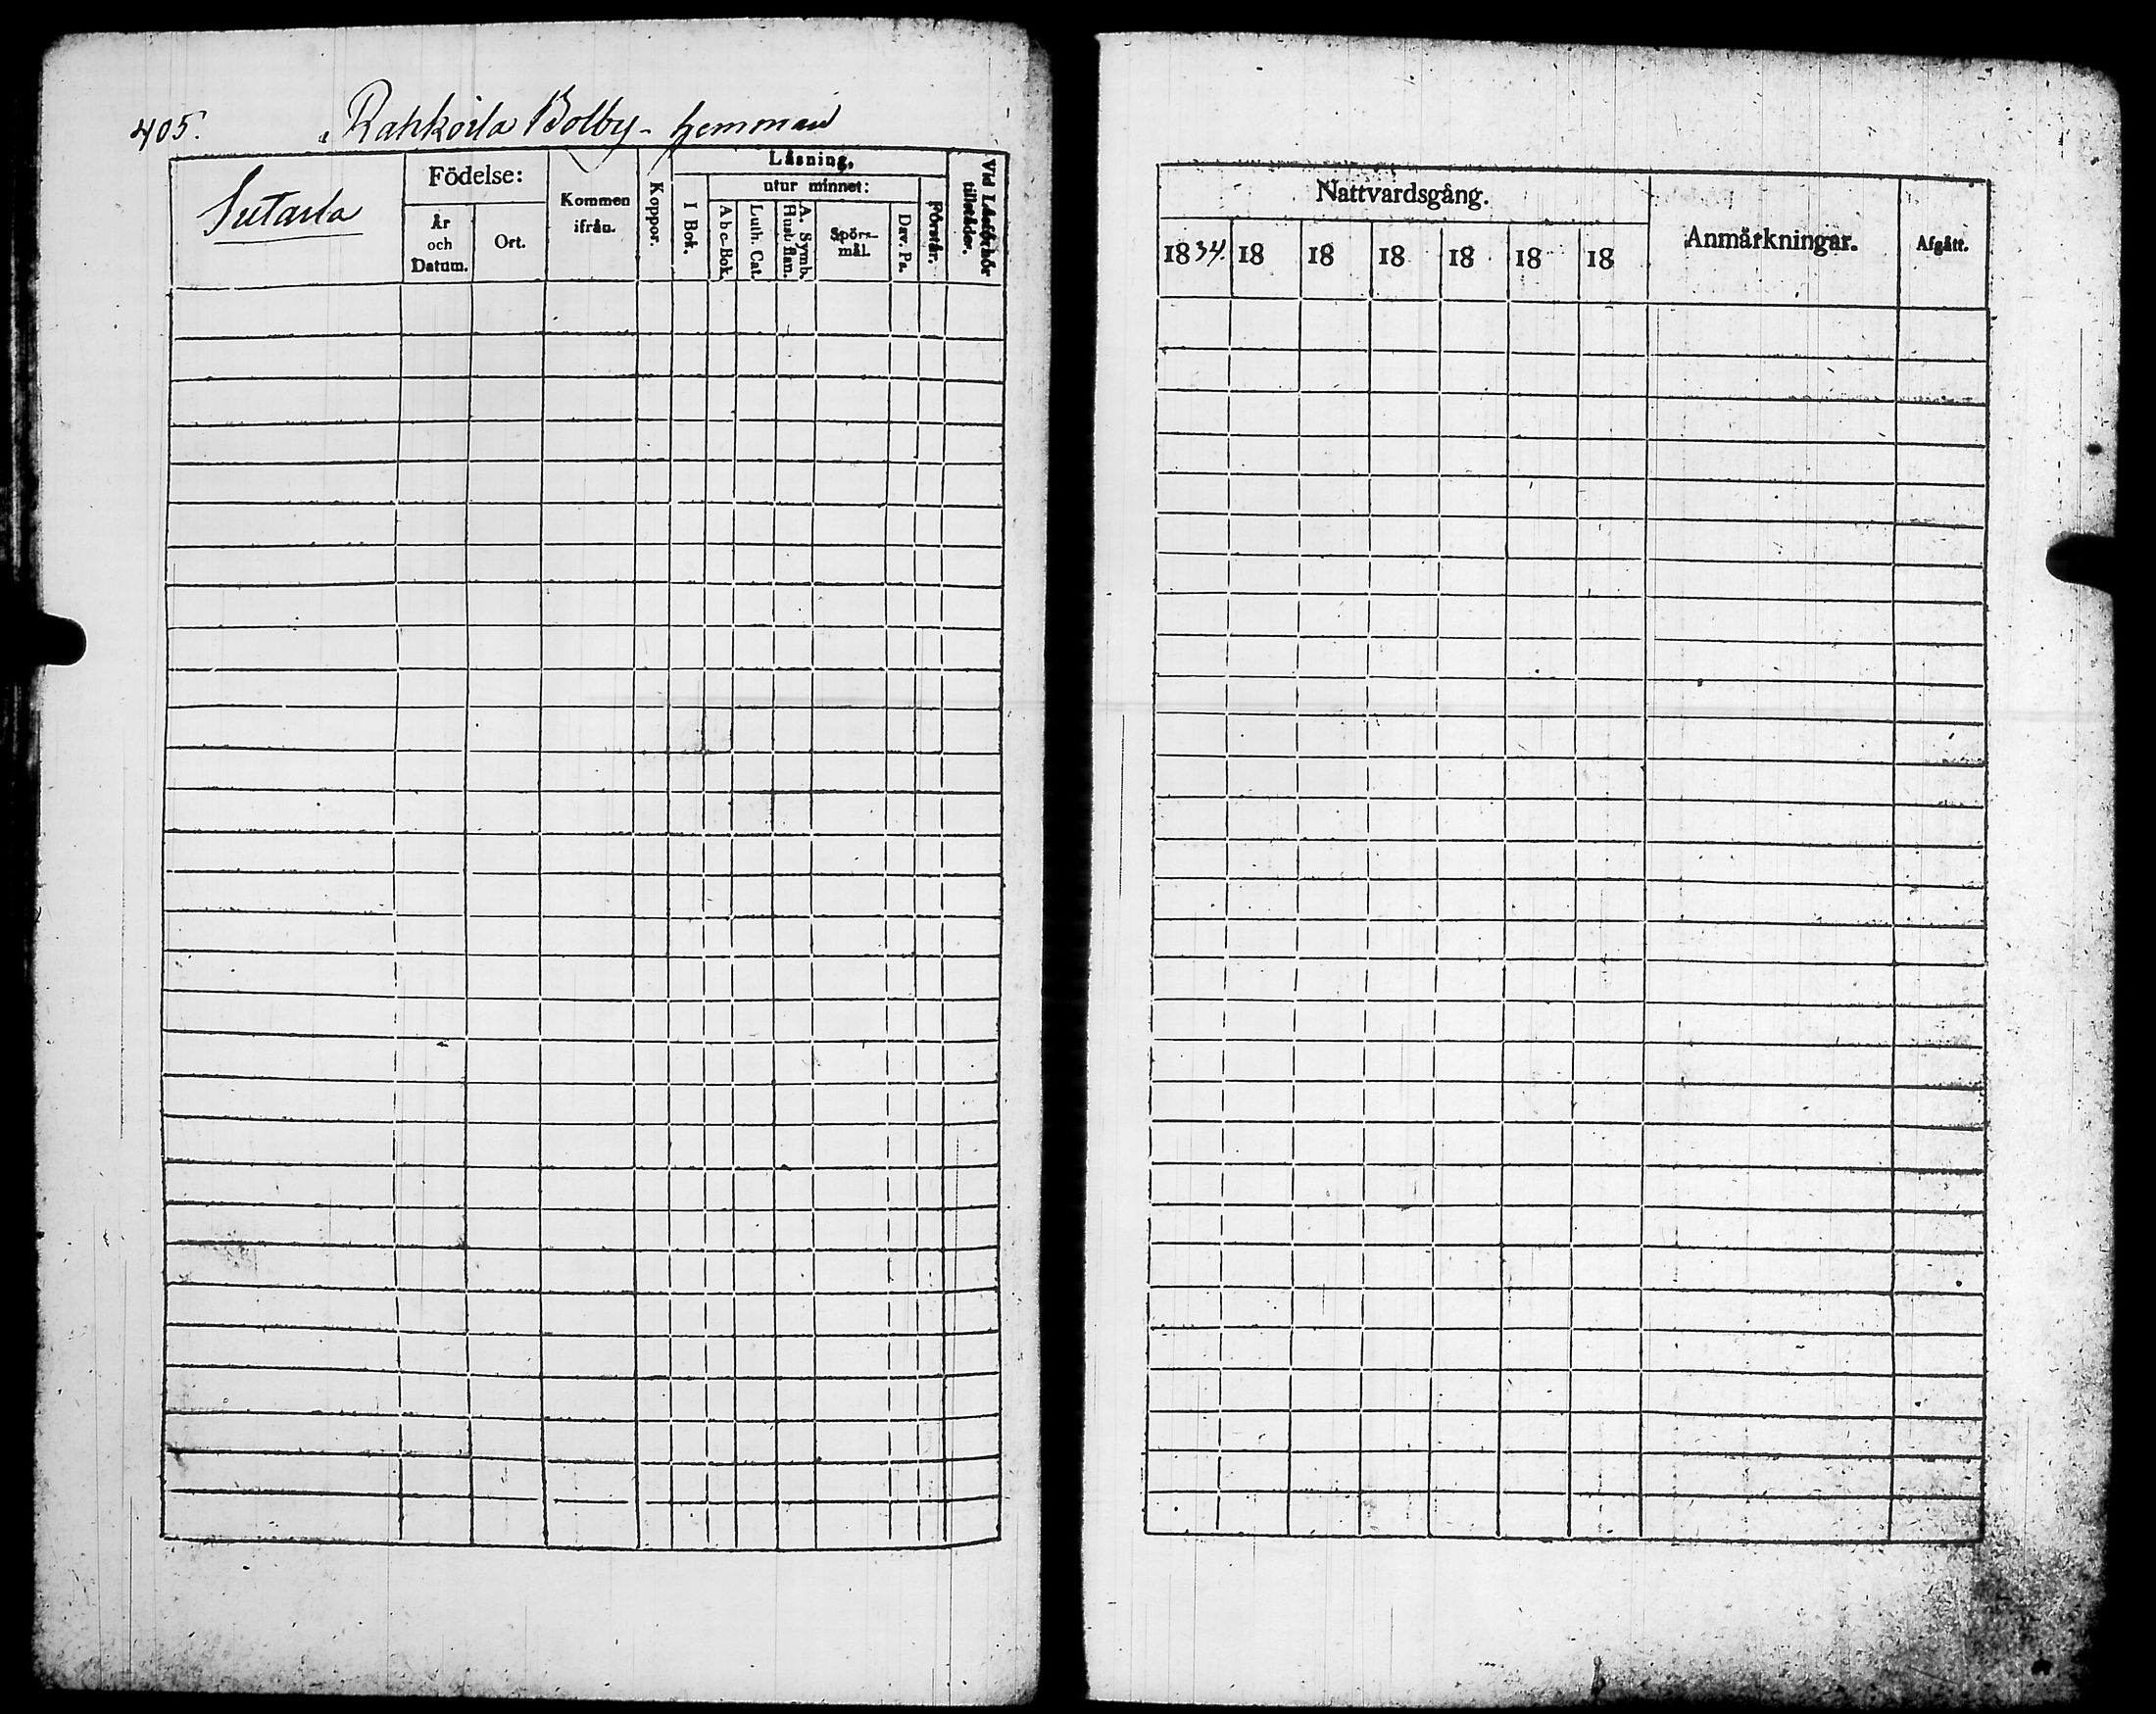 405. Rahkoila Bolby- hemman
Sutarla
Födelse:
År och Datum.
Ort.
Kommen ifrån.
Koppor.
Läsning,
I Bok.
utur minnet:
Abc-Bok.
Luth. Cat.
A. Symb. Hust. flan.
Spörs-mål.
Dav. Ps.
Förstår.
Vid Läsförhör tillstädes.
Nattvardsgång.
1834. 18 18 18 18 18 18
Anmärkningar.
Afgått.